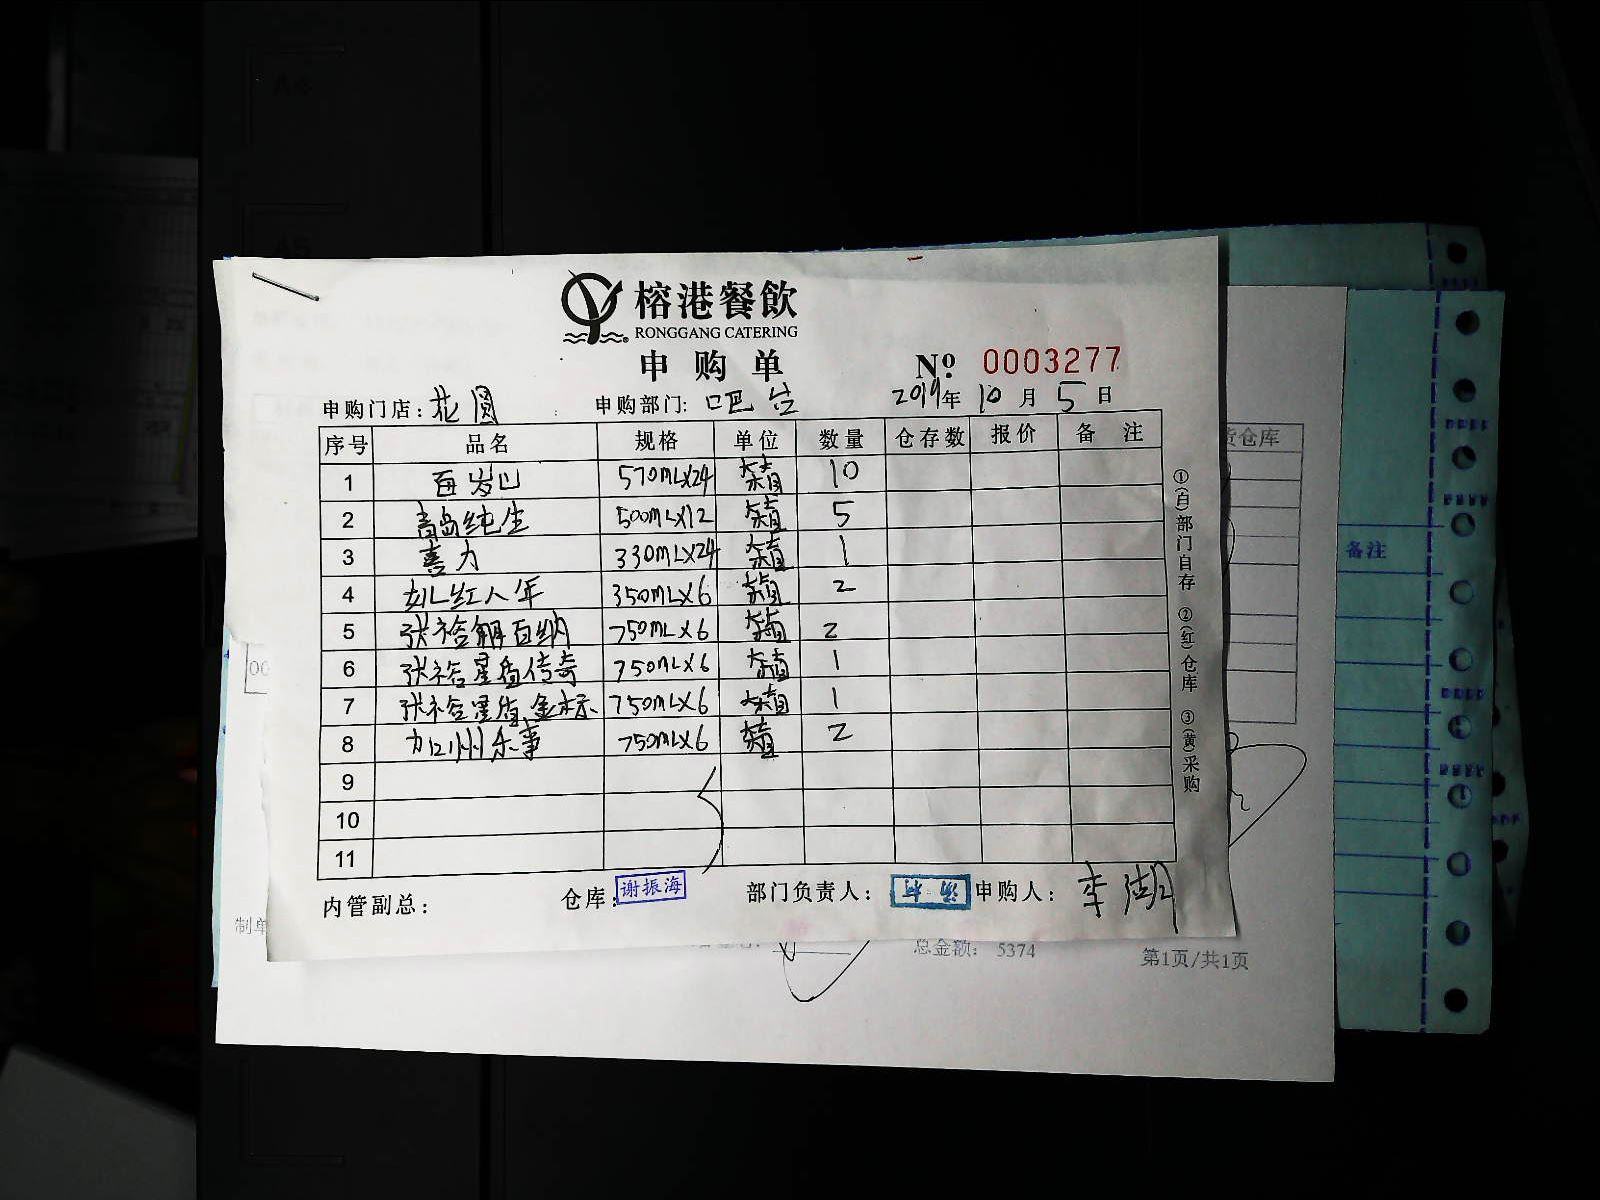 榕港餐飲
RONGGANG CATERING
申购单 Nº 0003277
申购门店: 花圆 申购部门: 吧台 2019年10月5日
序号 品名 规格 单位 数量 仓存数 报价 备注
1 百岁山 570mL×24 箱 10
2 青岛纯生 500mL×12 箱 5
3 喜力 330mL×24 箱 1
4 女儿红八年 350mL×6 箱 2
5 张裕解百纳 750mL×6 箱 2
6 张裕星级传奇 750mL×6 箱 1
7 张裕星级金标 750mL×6 箱 1
8 加州乐事 750mL×6 箱 2
9
10
11
①(白)部门自存 ②(红)仓库 ③(黄)采购
内管副总: 仓库: 谢振海 部门负责人: 申购人: 李湖
货仓库
备注
00
制单
总金额: 5374
第1页/共1页
A4
A5